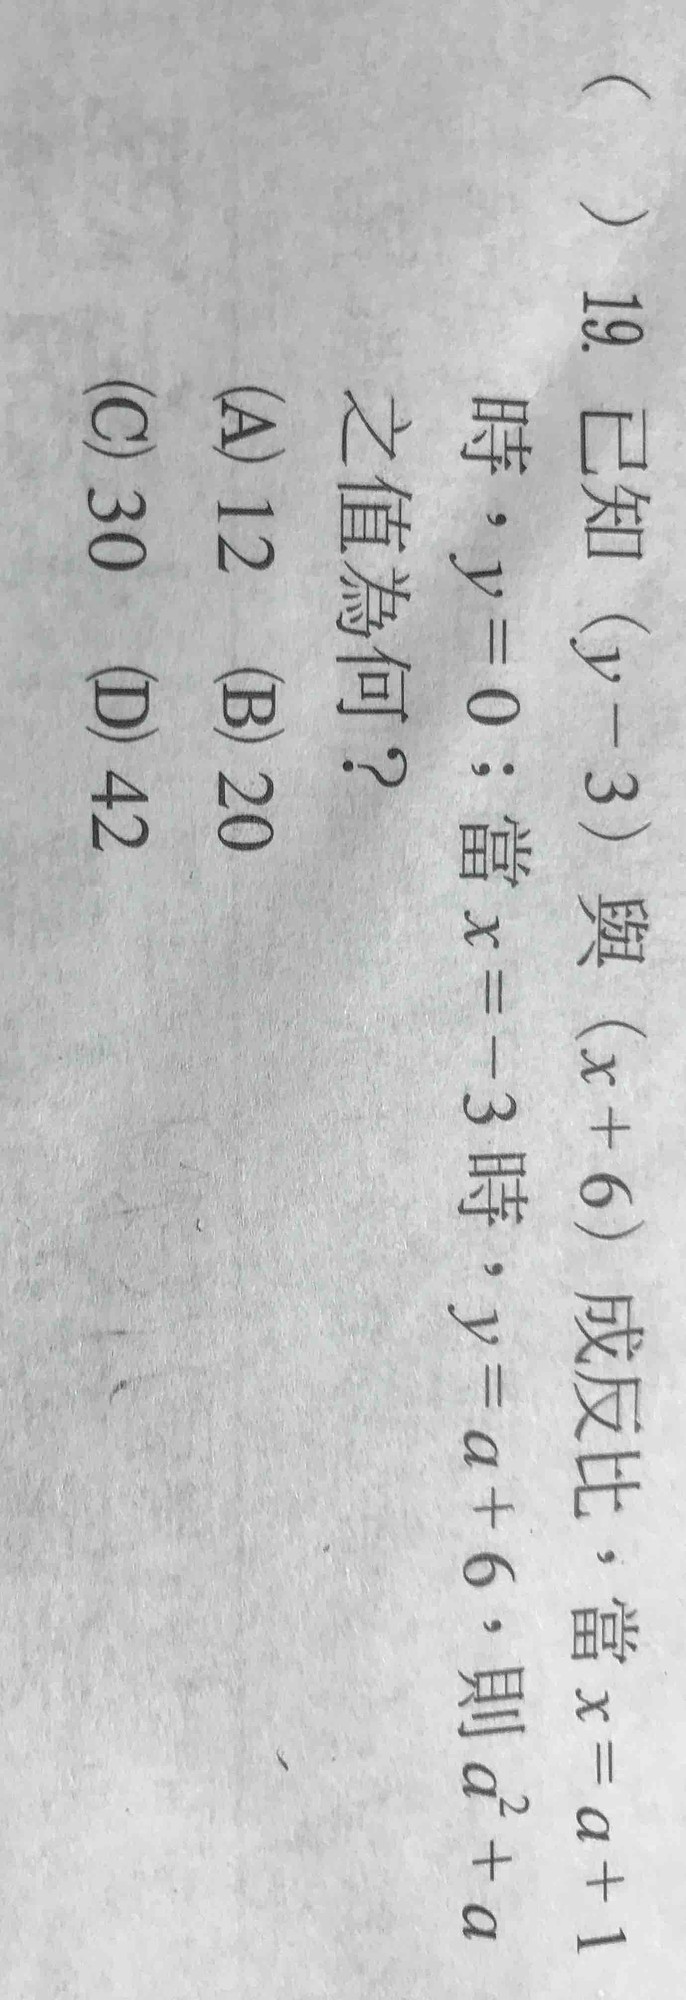 ( ) 19. 已知 (y-3) 與 (x+6) 成反比，當 x=a+1
時，y=0；當 x=-3 時，y=a+6，則 a²+a
之值為何？
(A) 12 (B) 20
(C) 30 (D) 42